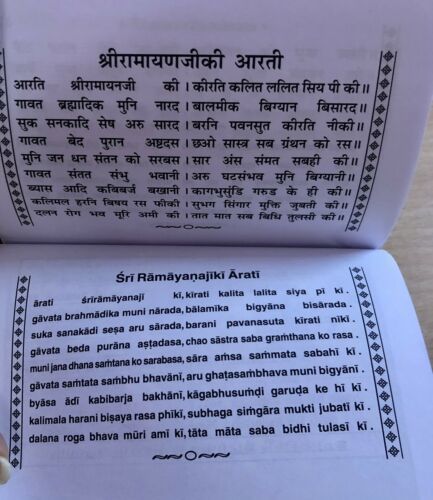 श्रीरामायणजीकी आरती
आरति श्रीरामायनजी की । कीरति कलित ललित सिय पी की ॥
गावत ब्रह्मादिक मुनि नारद । बालमीक बिग्यान बिसारद ॥
सुक सनकादि सेष अरु सारद । बरनि पवनसुत कीरति नीकी ॥
गावत बेद पुरान अष्टदस । छओ सास्त्र सब ग्रंथन को रस ॥
मुनि जन धन संतन को सरबस । सार अंस संमत सबही की ॥
गावत संतत संभु भवानी । अरु घटसंभव मुनि बिग्यानी ॥
ब्यास आदि कबिबर्ज बखानी । कागभुसुंडि गरुड के ही की ॥
कलिमल हरनि बिषय रस फीकी । सुभग सिंगार मुक्ति जुबती की ॥
दलन रोग भव मूरि अमी की । तात मात सब बिधि तुलसी की ॥
Śrī Rāmāyaṇajīkī Āratī
ārati śrīrāmāyanajī kī, kīrati kalita lalita siya pī kī .
gāvata brahmādika muni nārada, bālamīka bigyāna bisārada .
suka sanakādi seṣa aru sārada, barani pavanasuta kīrati nīkī .
gāvata beda purāna aṣṭadasa, chao sāstra saba graṁthana ko rasa .
muni jana dhana saṁtana ko sarabasa, sāra aṁsa saṁmata sabahī kī .
gāvata saṁtata saṁbhu bhavānī, aru ghaṭasaṁbhava muni bigyānī .
byāsa ādi kabibarja bakhānī, kāgabhusuṁḍi garuḍa ke hī kī .
kalimala harani biṣaya rasa phīkī, subhaga siṁgāra mukti jubatī kī .
dalana roga bhava mūri amī kī, tāta māta saba bidhi tulasī kī .